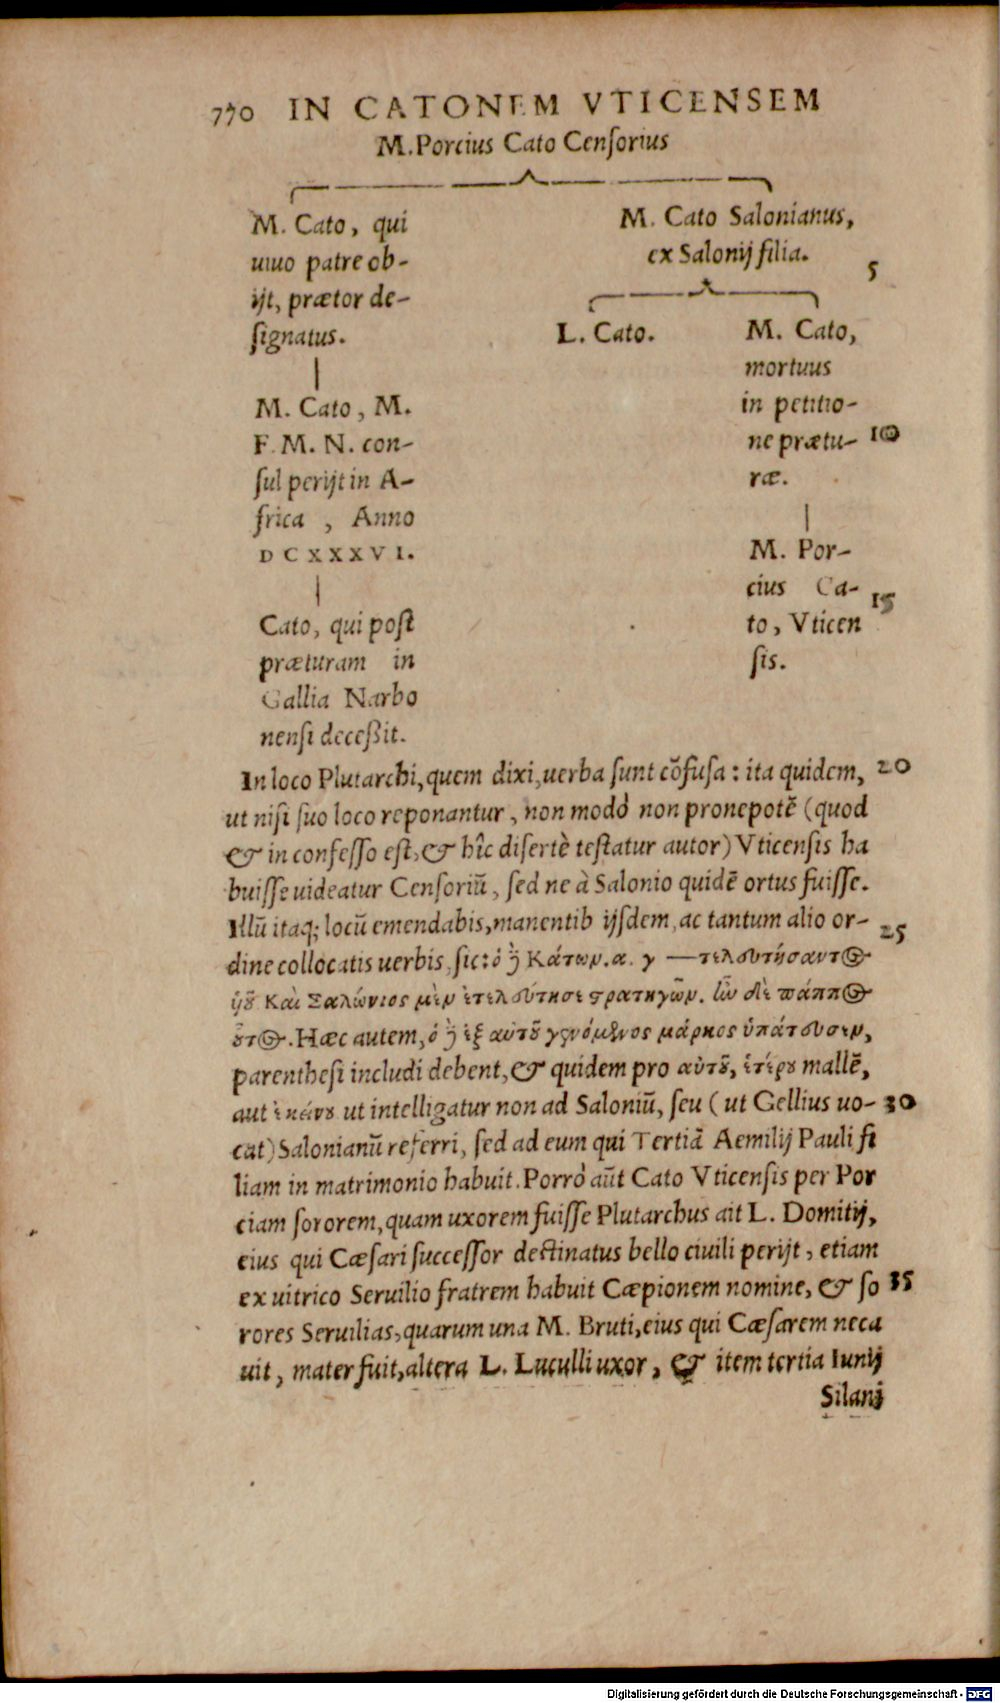 770 IN CATONEM VTICENSEM
M. Porcius Cato Censorius
M. Cato, qui
uiuo patre ob-
ijt, prætor de-
signatus.
M. Cato, M.
F. M. N. con-
sul perijt in A-
frica, Anno
DCXXXVI.
Cato, qui post
præturam in
Gallia Narbo
nensi decessit.
M. Cato Salonianus,
ex Salonij filia.
5
L. Cato.
M. Cato,
mortuus
in petitio-
ne prætu- 10
ræ.
M. Por-
cius Ca-
15
to, Vticen
sis.
In loco Plutarchi, quem dixi, uerba sunt cõfusa: ita quidem, 20
ut nisi suo loco reponantur, non modò non pronepotẽ (quod
& in confesso est, & hîc disertè testatur autor) Vticensis ha
buisse uideatur Censoriũ, sed ne à Salonio quidẽ ortus fuisse.
Illũ itaq; locũ emendabis, manentib ijsdem, ac tantum alio or- 25
dine collocatis uerbis, sic: ὁ ἢ Κάτων. α. γ — τελευτήσαντος
ὑοῦ Καὶ Σαλώνιος μὲν ἐτελεύτησε στρατηγῶν. ὧν δὲ πάππος
οὗτος. Hæc autem, ὁ ἢ ἐξ αὐτοῦ γενόμενος μάρκος ὑπάτευσεν,
parenthesi includi debent, & quidem pro αὐτοῦ, ἑτέρου mallẽ,
aut ἐκείνου ut intelligatur non ad Saloniũ, seu (ut Gellius uo- 30
cat) Salonianũ referri, sed ad eum qui Tertiã Aemilij Pauli fi
liam in matrimonio habuit. Porrò aũt Cato Vticensis per Por
ciam sororem, quam uxorem fuisse Plutarchus ait L. Domitij,
eius qui Cæsari successor destinatus bello ciuili perijt, etiam
ex uitrico Seruilio fratrem habuit Cæpionem nomine, & so 35
rores Seruilias, quarum una M. Bruti, eius qui Cæsarem neca
uit, mater fuit, altera L. Luculli uxor, & item tertia Iunij
Silani
Digitalisierung gefördert durch die Deutsche Forschungsgemeinschaft - DFG